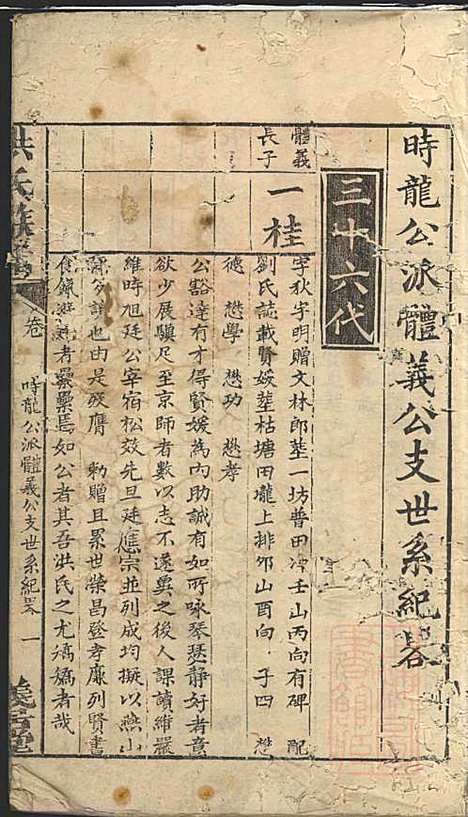 時龍公派體義公支世系紀畧
三十六代
體義
長子
一桂
字狄宇明贈文林郎塟一坊普田冲壬山丙向有碑 配
劉氏誌載賢媛塟枯塘田壠上排邜山酉向 子四 懋
德 懋學 懋功 懋孝
公豁達有才得賢媛為內助誠有如所咏琴瑟靜好者意
欲少展驥足至京師者數以志不遂興之後人課讀維嚴
維時旭廷公宰宿松效先旦廷應宗並列成均擬以燕山
分許也由是疾膺 勅贈且累世榮昌登孝廉列賢書
食餼遊者纍纍焉如公者其吾洪氏之尤矯矯者哉
洪氏族譜
卷
時龍公派體義公支世系紀畧 一
義堂